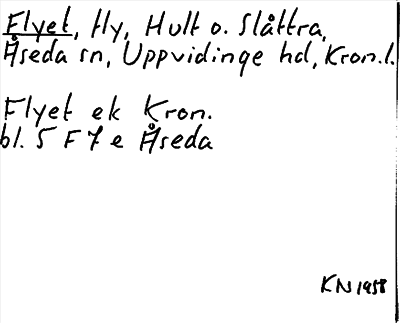 Flyet, Hy, Hult o. Slåttra,
Åseda sn, Uppvidinge hd, Kron.l.
Flyet ek Kron.
bl. 5 F 7 e Åseda
KN 1958